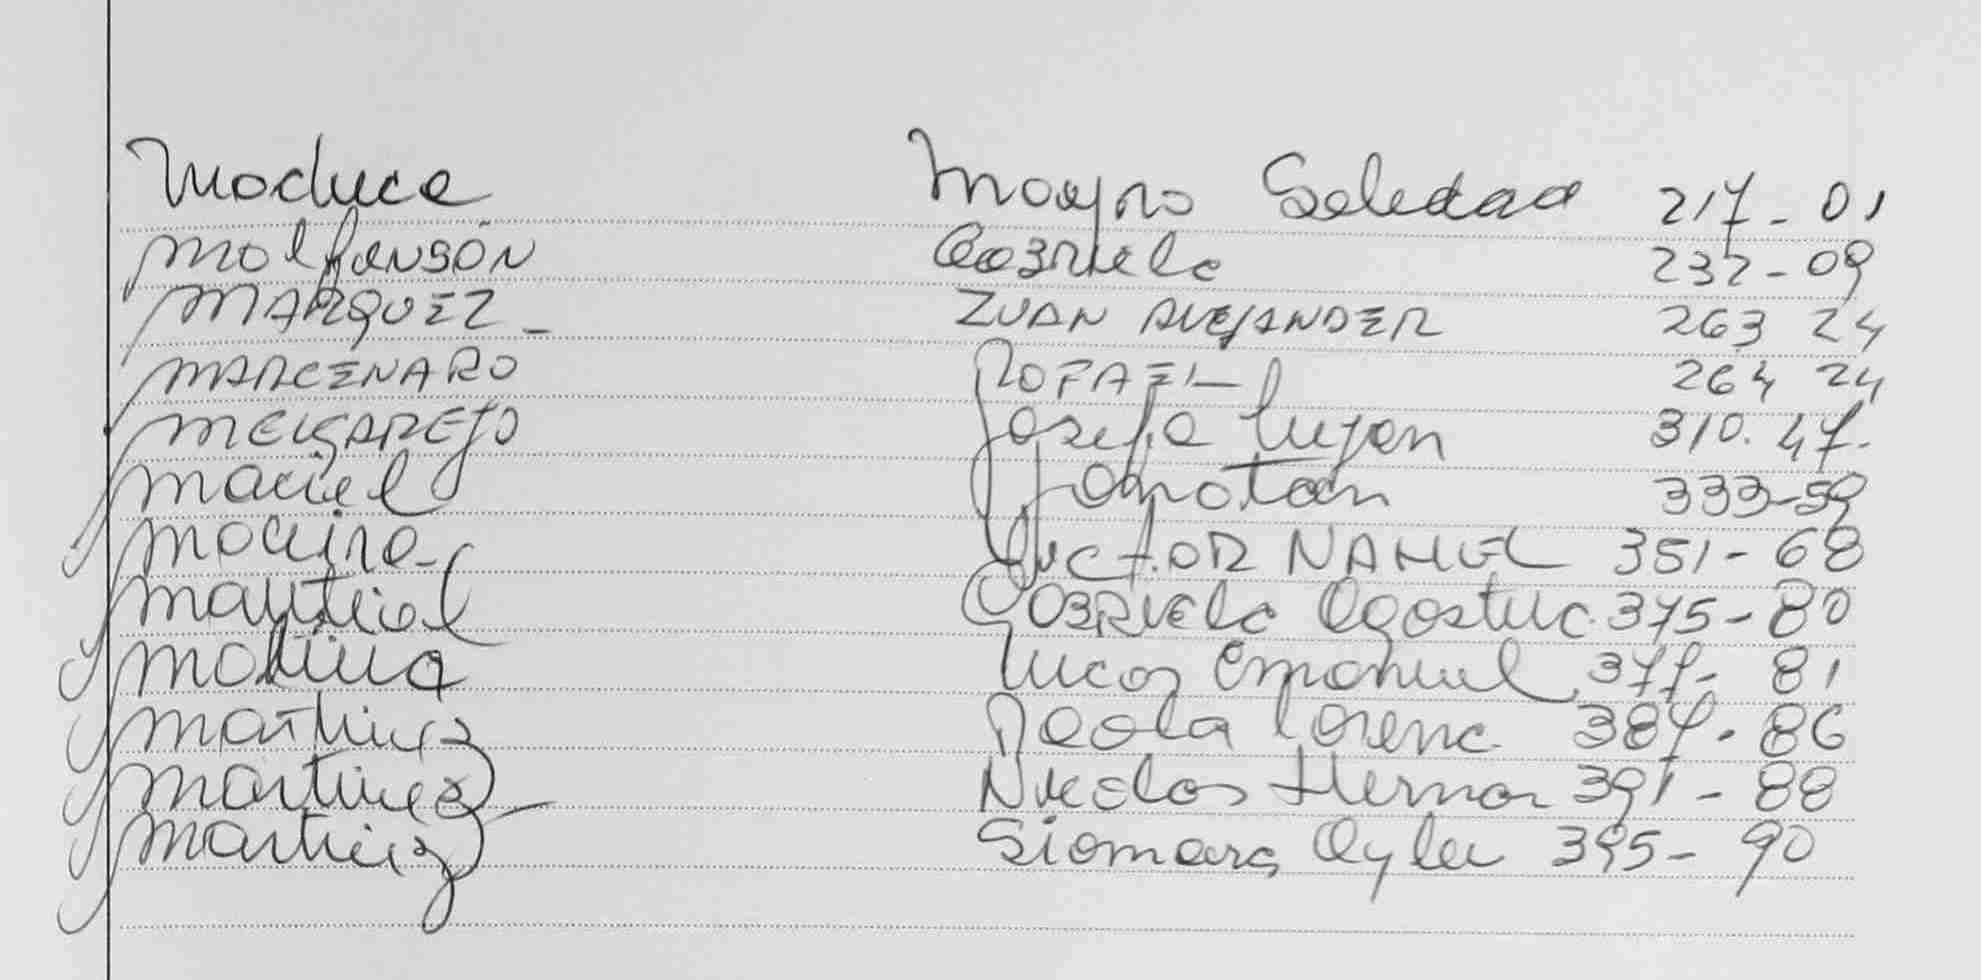 Mayra Soledad 217-01
Gabriela 232-09
MARQUEZ - JUAN ALEJANDER 263 24
MARCENARO RAFAEL 264 24
MELGAREJO Josefa Lujan 310.47.
Maciel Jonatan 333-59
HECTOR NAHUEL 351-68
Gabriela Agostina 375-80
Molina Lucas Emanuel 377-81
Martinez Paola Lorena 387-86
Martinez Nicolas Hernan 391-88
Martinez Siomara Ayle 395-90